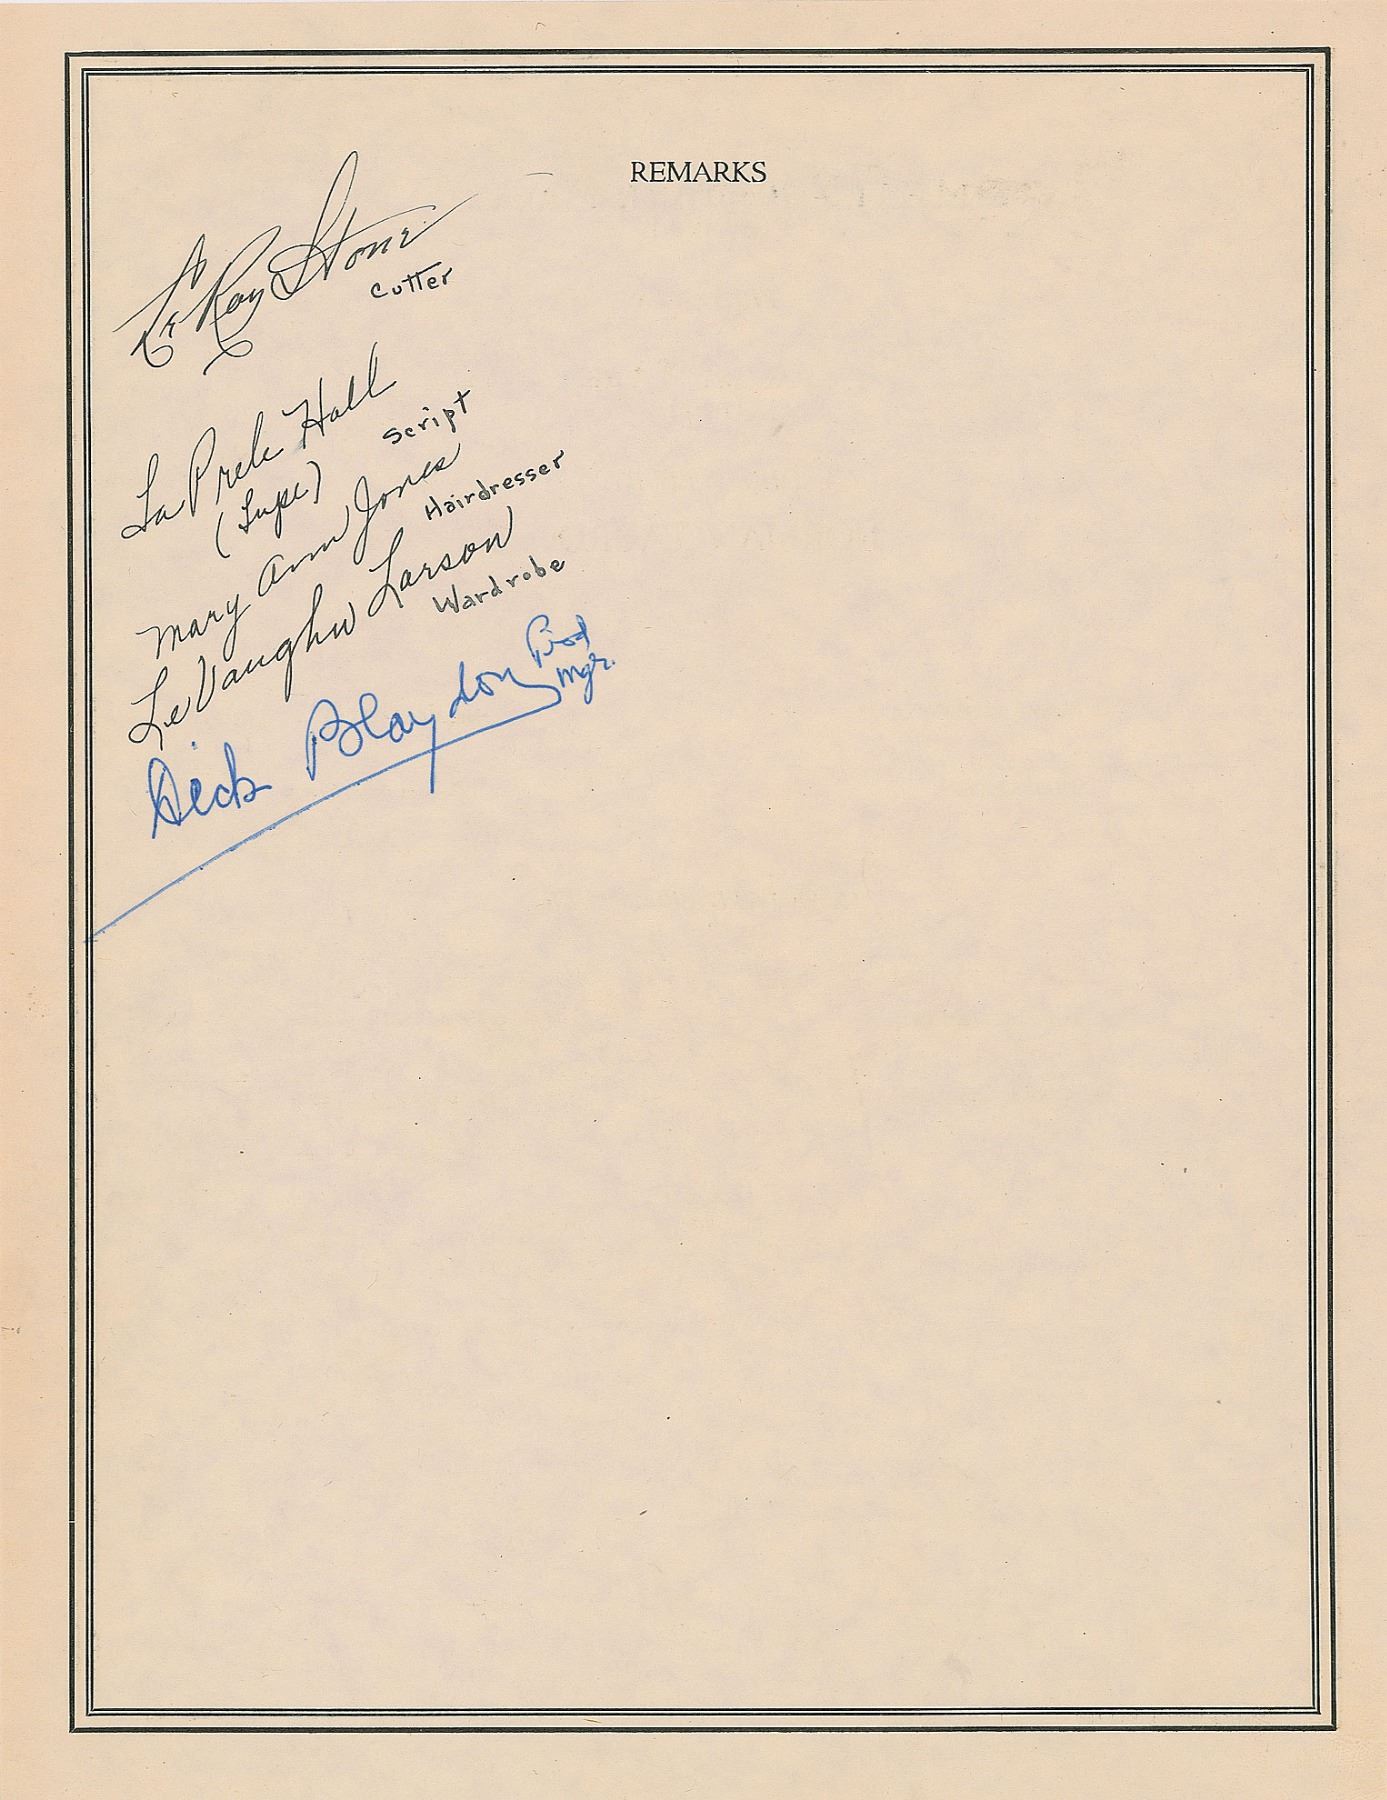 REMARKS
LeRoy Stone
Cutter
La Prele Hall
Script
(Lupe)
Mary Ann Jones
Hairdresser
LeVaughn Larson
Wardrobe
Dick Blaydon Prod
Mgr.